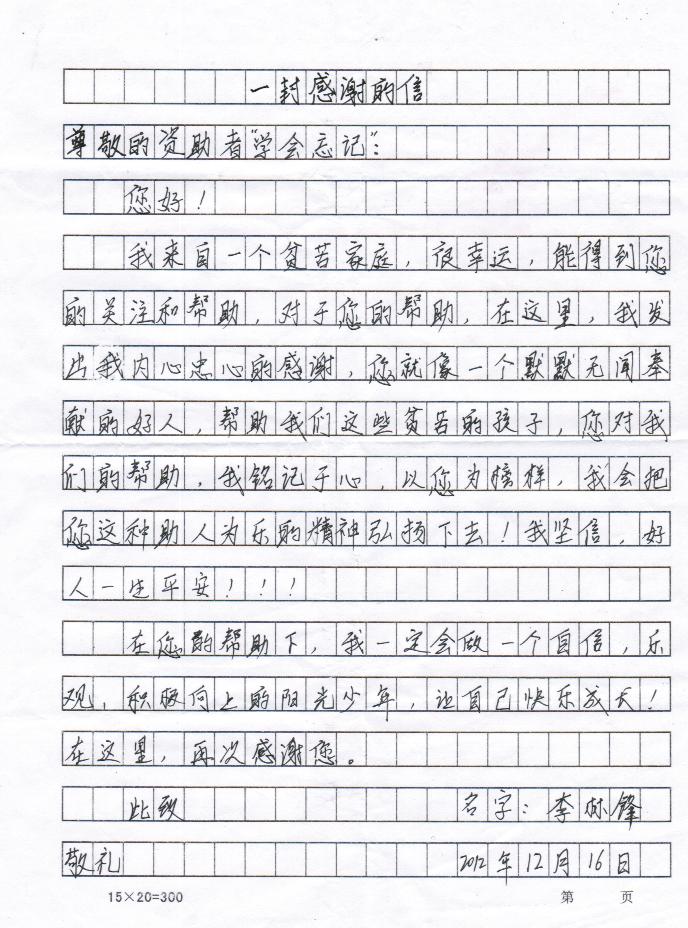 一封感谢的信
尊敬的资助者“学会忘记”：
您好！
我来自一个贫苦家庭，很幸运，能得到您
的关注和帮助，对于您的帮助，在这里，我发
出我内心忠心的感谢，您就像一个默默无闻奉
献的好人，帮助我们这些贫苦的孩子，您对我
们的帮助，我铭记于心，以您为榜样，我会把
您这种助人为乐的精神弘扬下去！我坚信，好
人一生平安！！！
在您的帮助下，我一定会做一个自信，乐
观，积极向上的阳光少年，让自己快乐成长！
在这里，再次感谢您。
此致 名字：李林锋
敬礼 2012年12月16日
15×20=300 第 页